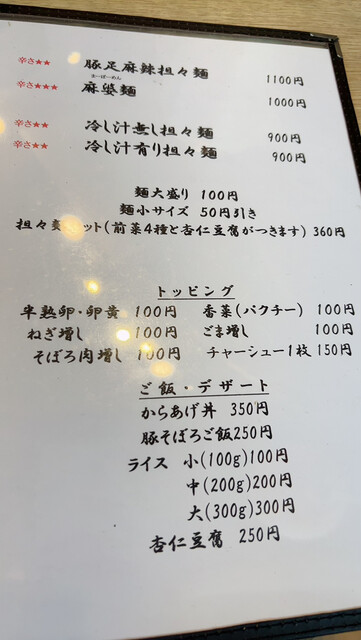 辛さ★★ 豚足麻辣担々麺 1100円
まーぼーめん
辛さ★★★ 麻婆麺 1000円
辛さ★★ 冷し汁無し担々麺 900円
辛さ★★ 冷し汁有り担々麺 900円
麺大盛り 100円
麺小サイズ 50円引き
担々麺セット(前菜4種と杏仁豆腐がつきます) 360円
トッピング
半熟卵・卵黄 100円 香菜(パクチー) 100円
ねぎ増し 100円 ごま増し 100円
そぼろ肉増し 100円 チャーシュー1枚 150円
ご飯・デザート
からあげ丼 350円
豚そぼろご飯 250円
ライス 小(100g)100円
中(200g)200円
大(300g)300円
杏仁豆腐 250円